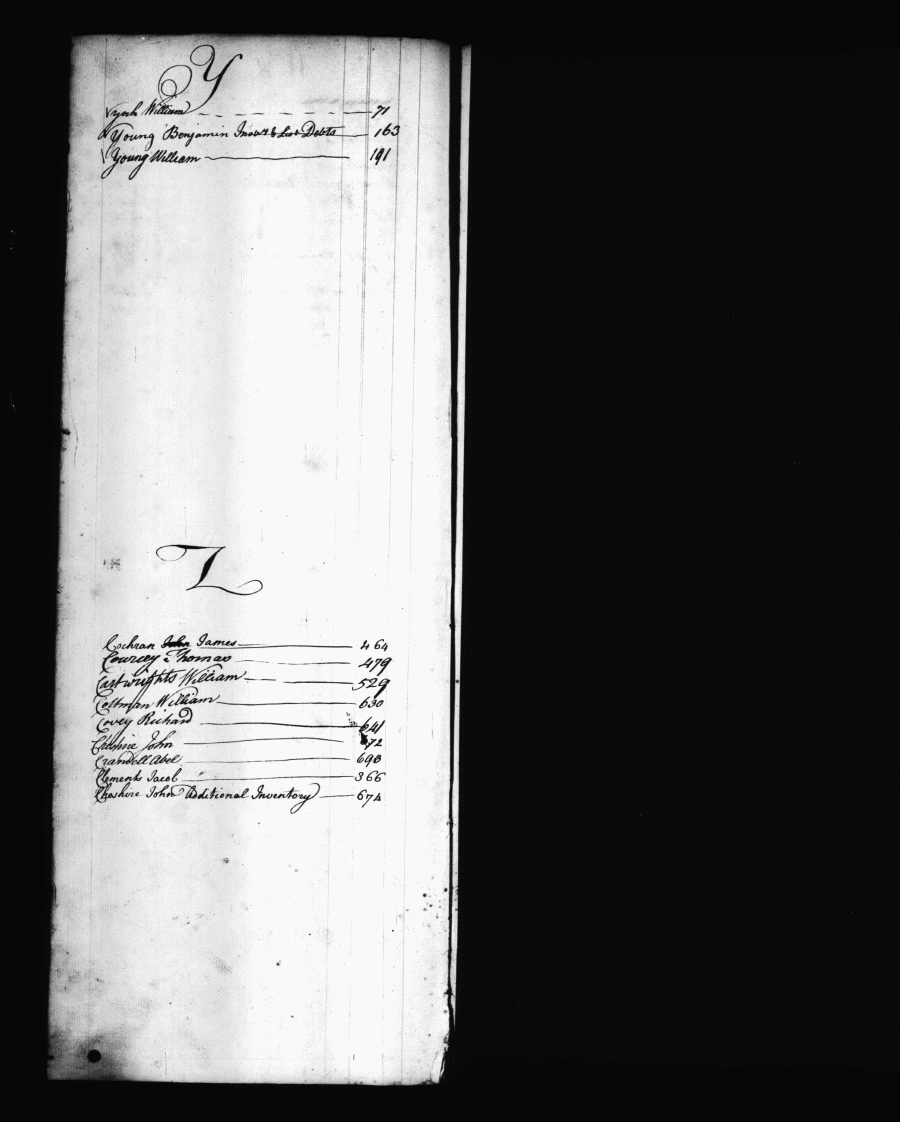 Y
Yeah William 71
Young Benjamin Inovr & List Debts 163
Young William 191
Z
Cochran John James 464
Courcey Thomas 479
Cartwrights William 529
Coltman William 630
Covey Richard 641
Cheshire John 672
Crandell Abel 693
Clements Jacob 366
Cheshire John Additional Inventory 674